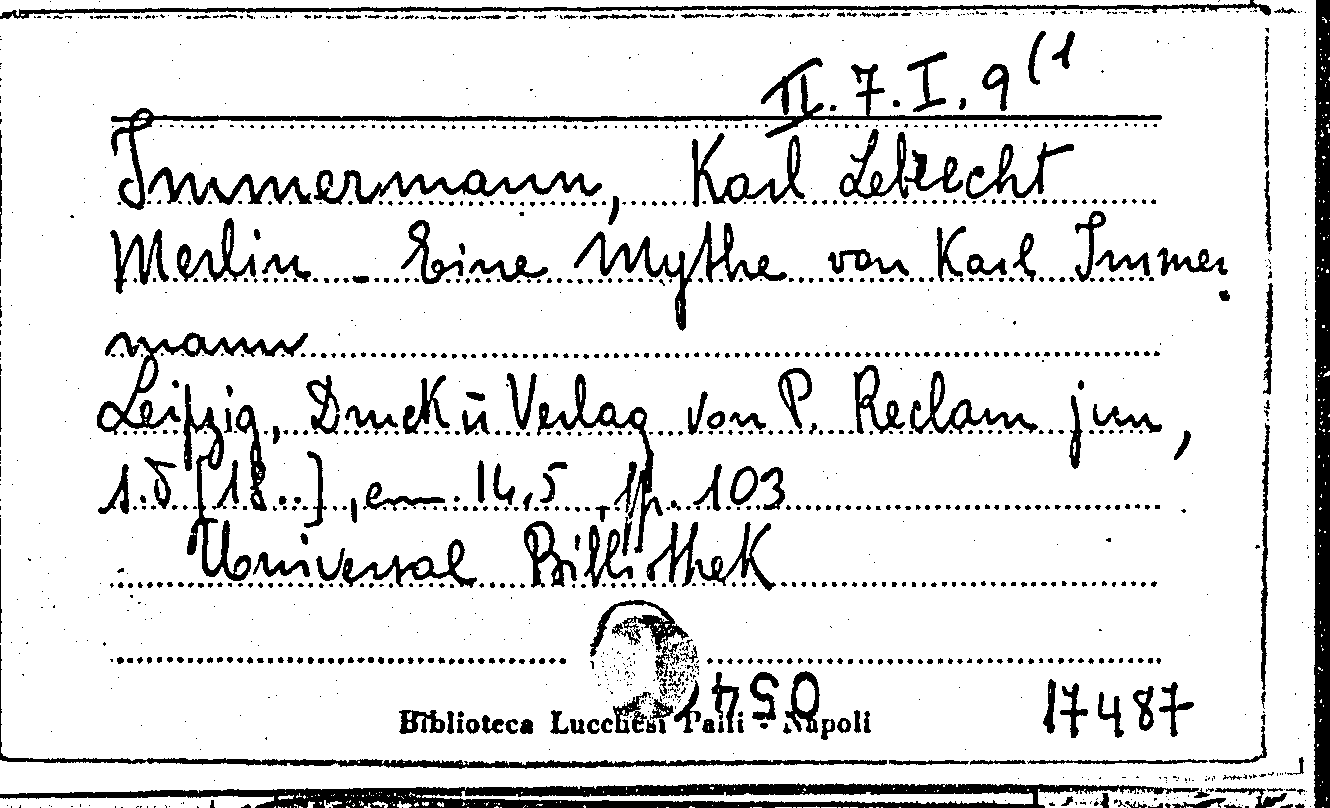 II. 7. I. 9 (1
Immermann, Karl Lebrecht
Merlin - Eine Mythe von Karl Immer
mann
Leipzig, Druck ū Verlag von P. Reclam jun,
s.d [18..], cm. 14,5, pp. 103
Universal Bibliothek
054
Biblioteca Lucchesi Palli - Napoli
17487